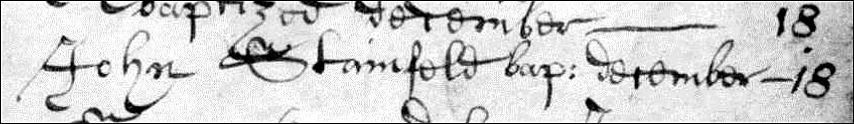 baptized december 18
John Stainfeld bap: december - 18